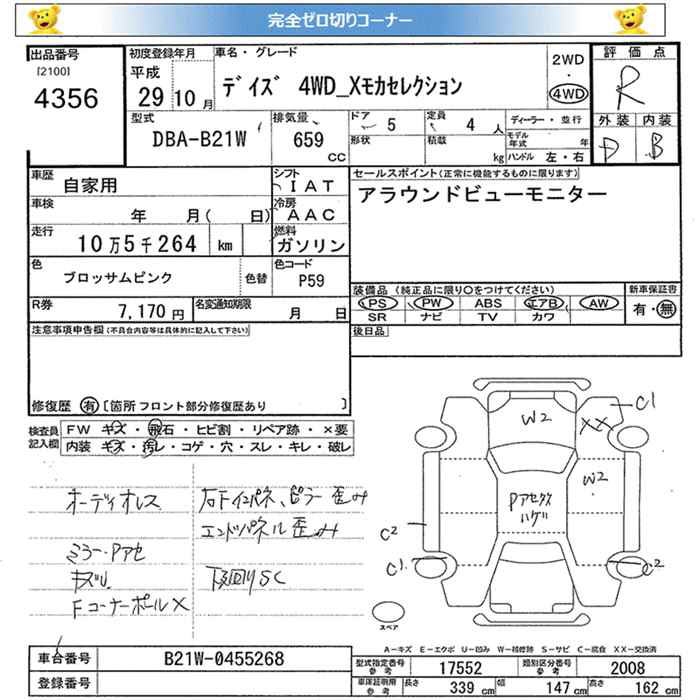 完全ゼロ切りコーナー
出品番号
[2100]
4356
初度登録年月
平成
29 10 月
車名・グレード
デイズ 4WD_Xモカセレクション
2WD
・
4WD
評価点
R
外装 内装
D B
型式
DBA-B21W
排気量
659
CC
ドア
5
形状
定員
4 人
積載
kg
ディーラー・並行
モデル年式 年
ハンドル 左・右
車歴
自家用
シフト
IAT
車検
年 月( 日)
冷房
AAC
走行
10万5千264 km
燃料
ガソリン
色
ブロッサムピンク
色替
色コード
P59
R券
7,170 円
名変通知期限
月 日
セールスポイント(正常に機能するものに限ります)
アラウンドビューモニター
装備品 (純正品に限り○をつけてください)
PS PW ABS エアB AW
SR ナビ TV カワ
新車保証書
有・無
後日品
注意事項申告欄(不具合内容等は具体的に記入して下さい)
修復歴 有 [箇所 フロント部分修復歴あり ]
検査員記入欄
FW キズ・飛石・ヒビ割・リペア跡・×要
内装 キズ・汚レ・コゲ・穴・スレ・キレ・破レ
オーディオレス
ミラー・Pアセ
キズU
Fコーナーポール×
右Fインパネ、ピラー歪み
エンドパネル歪み
下回りSC
C1
W2
XX
W2
C2
C1
C2
スペア
A-キズ E-エクボ U-凹み W-補修跡 S-サビ C-腐食 XX-交換済
車台番号
B21W-0455268
登録番号
型式指定番号 参考
17552
類別区分番号 参考
2008
車庫証明用 参考
長さ 339 cm
幅 147 cm
高さ 162 cm